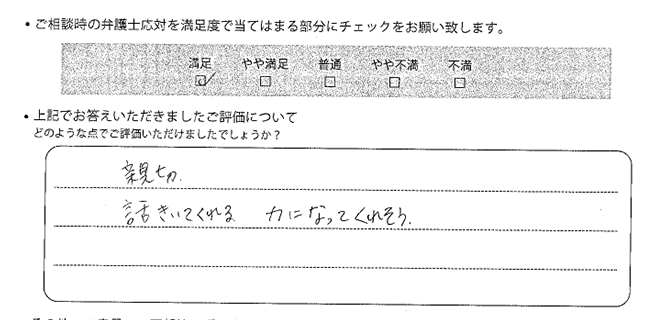 ・ご相談時の弁護士応対を満足度で当てはまる部分にチェックをお願い致します。
満足 やや満足 普通 やや不満 不満
☑ □ □ □ □
・上記でお答えいただきましたご評価について
どのような点でご評価いただけましたでしょうか？
親切.
話きいてくれる 力になってくれそう.